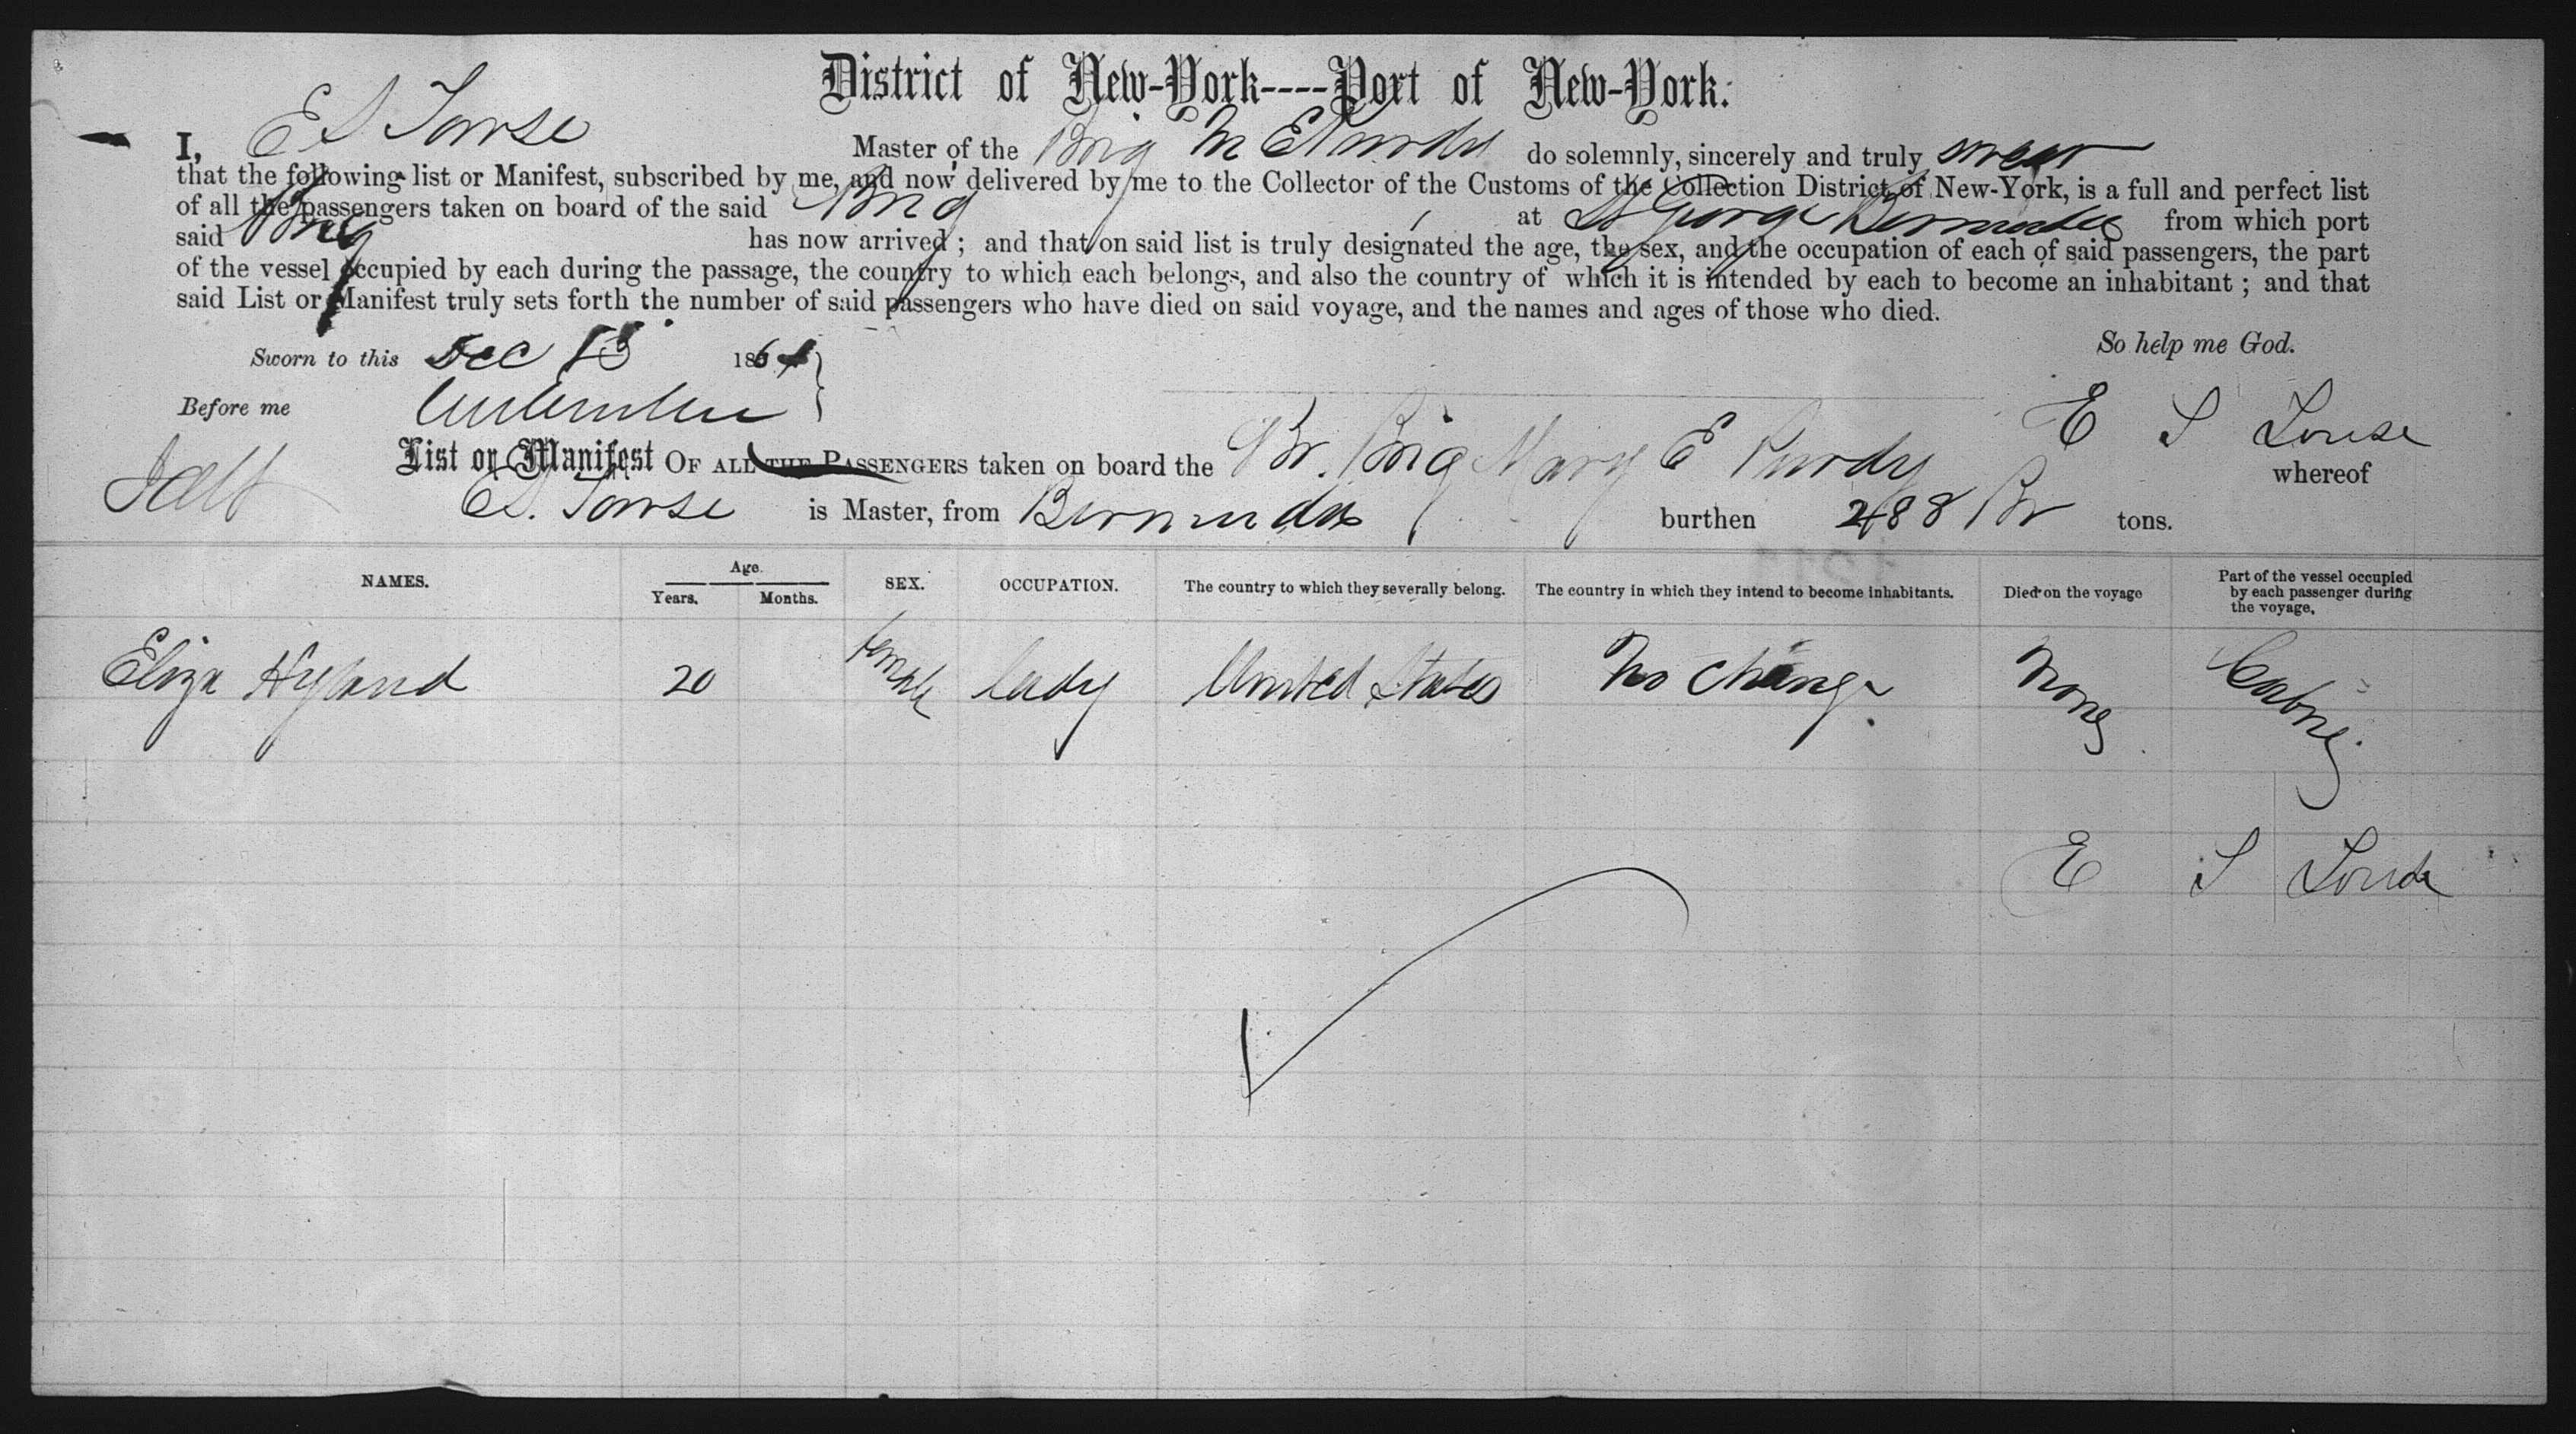 District of New-York----Port of New-York.
I, E S Towse Master of the Brig M E Purdy do solemnly, sincerely and truly swear
that the following list or Manifest, subscribed by me, and now delivered by me to the Collector of the Customs of the Collection District of New-York, is a full and perfect list
of all the passengers taken on board of the said Brig at St George Bermudas from which port
said Brig has now arrived; and that on said list is truly designated the age, the sex, and the occupation of each of said passengers, the part
of the vessel occupied by each during the passage, the country to which each belongs, and also the country of which it is intended by each to become an inhabitant; and that
said List or Manifest truly sets forth the number of said passengers who have died on said voyage, and the names and ages of those who died.
So help me God.
Sworn to this Dec 13 1864
Before me
E S Towse
List or Manifest OF ALL THE PASSENGERS taken on board the Br. Brig Mary E Purdy whereof
E S. Towse is Master, from Bermudas burthen 288 Br tons.
NAMES. Age. Years. Months. SEX. OCCUPATION. The country to which they severally belong. The country in which they intend to become inhabitants. Died on the voyage Part of the vessel occupied by each passenger during the voyage.
Eliza Hyland 20 female lady United States No change None Cabin
E S Towse